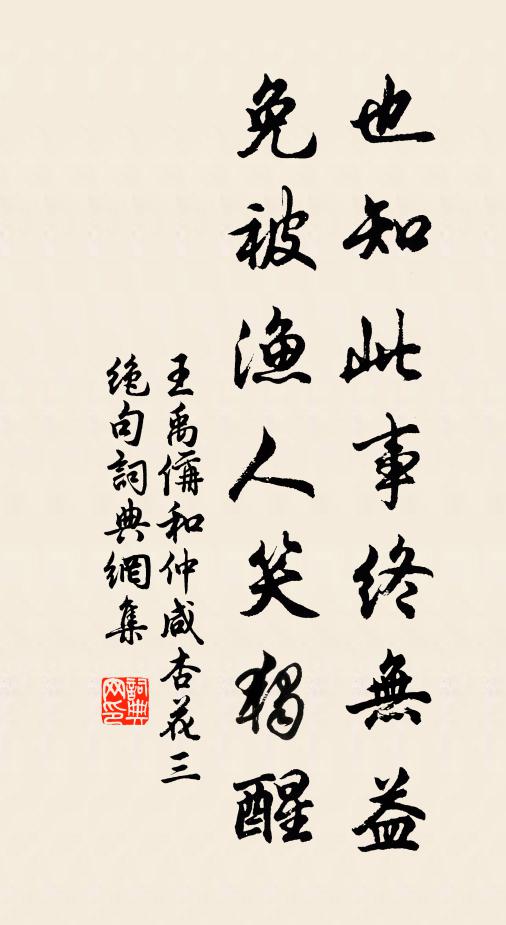 也知此事終無益
免被漁人笑獨醒
王禹偁和仲咸杏花三
絕句詞典網集
詞典網印